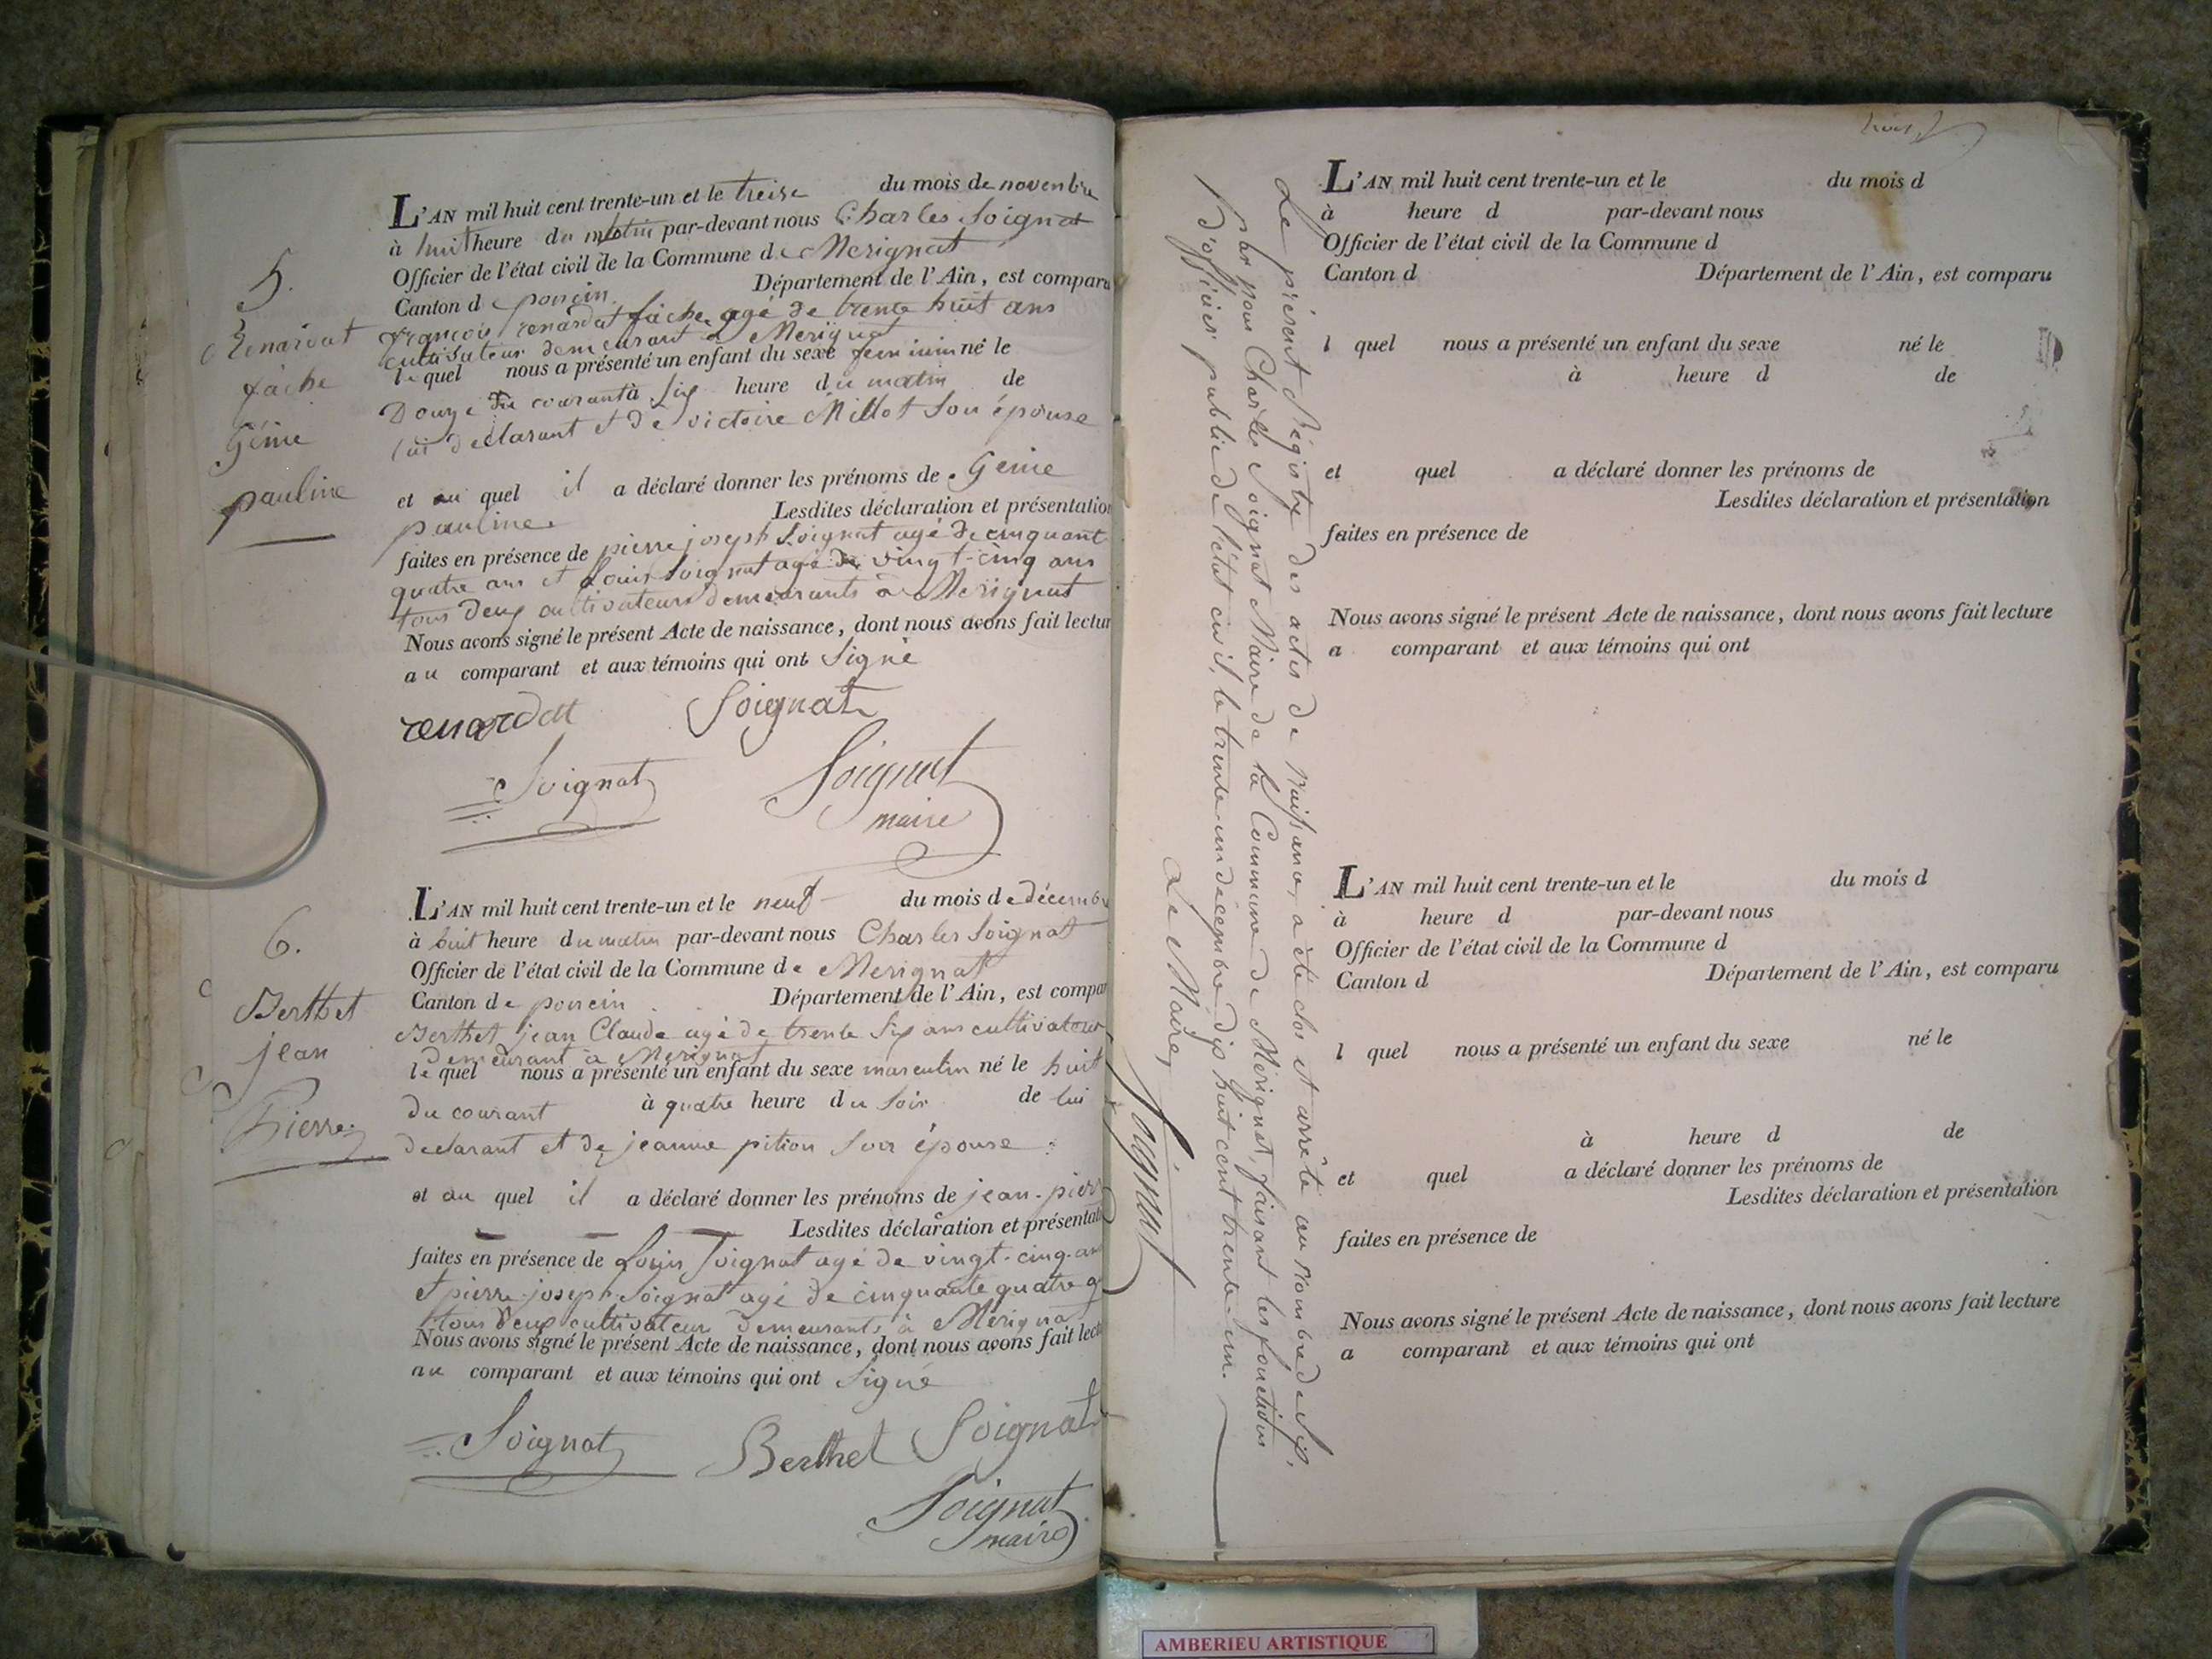 5.
Renardat
fâche
Génie
pauline
L'AN mil huit cent trente-un et le treise du mois de novembre
à huit heure du matin par-devant nous Charles Soignat
Officier de l'état civil de la Commune de Merignat
Canton de poncin Département de l'Ain, est comparu
françois renardat fâche agé de trente huit ans
cultivateur demeurant à Merignat
lequel nous a présenté un enfant du sexe feminin né le
Douze du courant à six heure du matin de
lui declarant et de victoire Millot son épouse
et au quel il a déclaré donner les prénoms de Genie
pauline Lesdites déclaration et présentation
faites en présence de pierre joseph Soignat agé de cinquant
quatre ans et Louis Soignat agé de vingt-cinq ans
tous deux cultivateurs demeurants à Merignat
Nous avons signé le présent Acte de naissance, dont nous avons fait lectur
au comparant et aux témoins qui ont Signé
renardat Soignat
Soignat Soignat
maire
6.
Berthet
jean
Pierre
L'AN mil huit cent trente-un et le neuf du mois de décembre
à huit heure du matin par-devant nous Charles Soignat
Officier de l'état civil de la Commune de Merignat
Canton de poncin Département de l'Ain, est compar
Berthet jean Claude agé de trente six ans cultivateur
demeurant à Merignat
lequel nous a présenté un enfant du sexe masculin né le huit
du courant à quatre heure du soir de lui
declarant et de jeanne pition son épouse
et au quel il a déclaré donner les prénoms de jean-pierr
Lesdites déclaration et présentati
faites en présence de Louis Soignat agé de vingt-cinq-an
et pierre-joseph Soignat agé de cinquante quatre a
tous deux cultivateur demeurants à Mérignat
Nous avons signé le présent Acte de naissance, dont nous avons fait lect
au comparant et aux témoins qui ont Signé
Soignat Berthet Soignat
Soignat
maire
Le présent Régistre des actes de Naissance, a été clos et arrêté au Nombre de Six,
par nous Charles Soignat Maire de la Commune de Mérignat, faisant les fonctions
d'officier public de l'état civil, le trente-un decembre dix huit cent trente-un.
Le Maire,
Soignat
L'AN mil huit cent trente-un et le du mois d
à heure d par-devant nous
Officier de l'état civil de la Commune d
Canton d Département de l'Ain, est comparu
l quel nous a présenté un enfant du sexe né le
à heure d de
et quel a déclaré donner les prénoms de
Lesdites déclaration et présentation
faites en présence de
Nous avons signé le présent Acte de naissance, dont nous avons fait lecture
a comparant et aux témoins qui ont
L'AN mil huit cent trente-un et le du mois d
à heure d par-devant nous
Officier de l'état civil de la Commune d
Canton d Département de l'Ain, est comparu
l quel nous a présenté un enfant du sexe né le
à heure d de
et quel a déclaré donner les prénoms de
Lesdites déclaration et présentation
faites en présence de
Nous avons signé le présent Acte de naissance, dont nous avons fait lecture
a comparant et aux témoins qui ont
AMBERIEU ARTISTIQUE